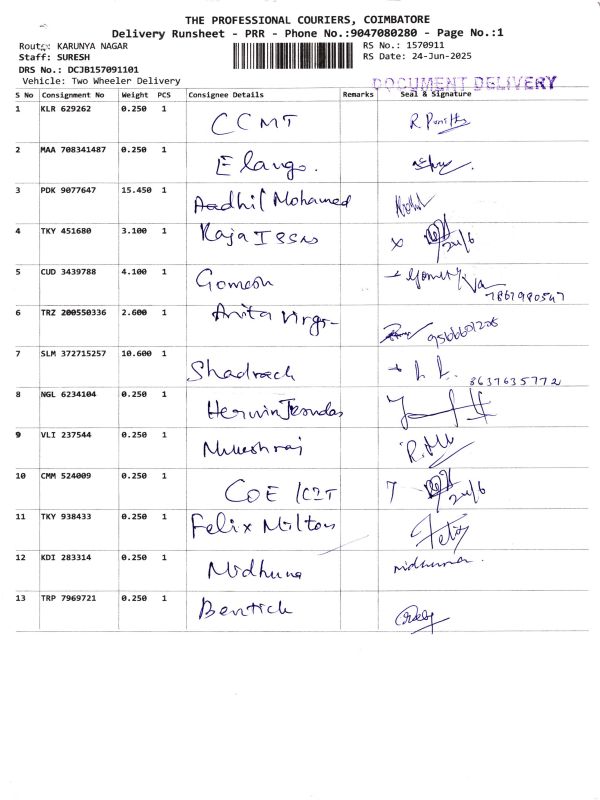 THE PROFESSIONAL COURIERS, COIMBATORE
Delivery Runsheet - PRR - Phone No.:9047080280 - Page No.:1
Route: KARUNYA NAGAR RS No.: 1570911
Staff: SURESH RS Date: 24-Jun-2025
DRS No.: DCJB157091101
Vehicle: Two Wheeler Delivery
DOCUMENT DELIVERY
S No Consignment No Weight PCS Consignee Details Remarks Seal & Signature
1 KLR 629262 0.250 1 CCMT
2 MAA 708341487 0.250 1 Elango.
3 PDK 9077647 15.450 1 Aadhil Mohamed
4 TKY 451680 3.100 1 Raja x 24/6
5 CUD 3439788 4.100 1
6 TRZ 200550336 2.600 1 Anita
7 SLM 372715257 10.600 1 Shadrach 8637635772
8 NGL 6234104 0.250 1
9 VLI 237544 0.250 1
10 CMM 524009 0.250 1 COE 24/6
11 TKY 938433 0.250 1 Felix Milton Felix
12 KDI 283314 0.250 1 Midhuna midhuna.
13 TRP 7969721 0.250 1 Bentick